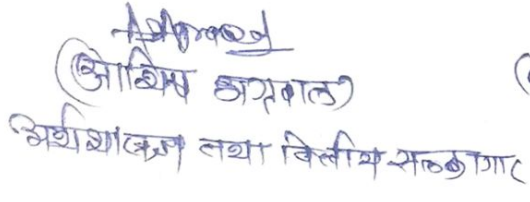 (आशिष अग्रवाल)
अर्थशास्त्री तथा वित्तीय सल्लाहागार